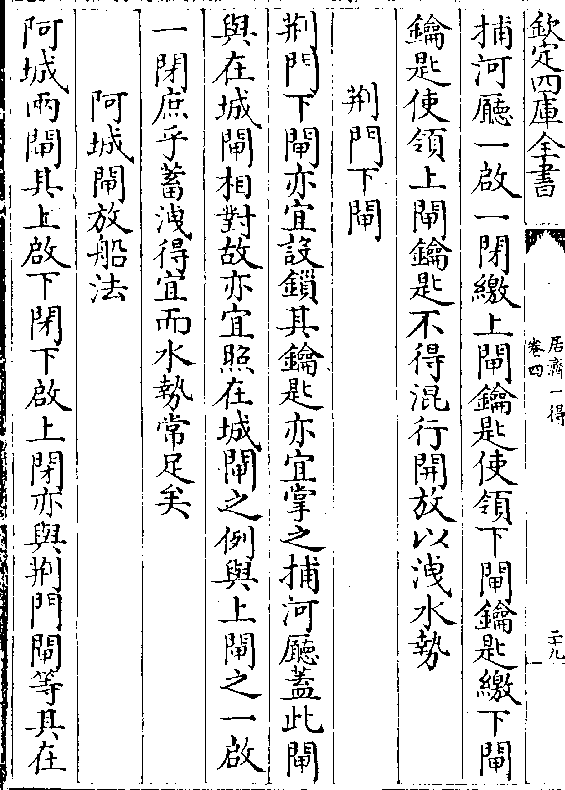 欽定四庫全書
居濟一得
卷四
二十九
捕河廳一啟一閉繳上閘鑰匙使領下閘鑰匙繳下閘
鑰匙使領上閘鑰匙不得混行開放以洩水勢
荆門下閘
荆門下閘亦宜設鎖其鑰匙亦宜掌之捕河廳蓋此閘
與在城閘相對故亦宜照在城閘之例與上閘之一啟
一閉庶乎蓄洩得宜而水勢常足矣
阿城閘放船法
阿城兩閘其上啟下閉下啟上閉亦與荆門閘等具在